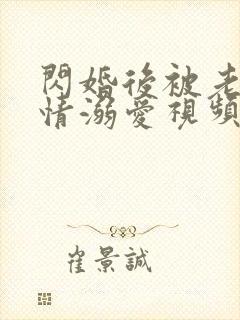 閃婚後被老
情溺愛視頻
崔景誠